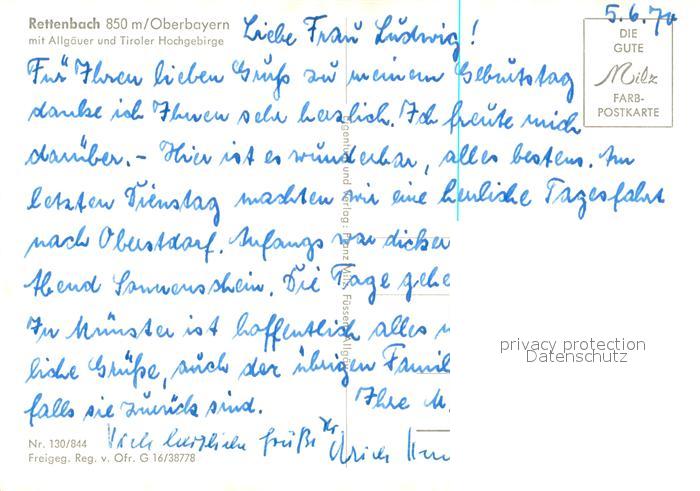 Rettenbach 850 m/Oberbayern
mit Allgäuer und Tiroler Hochgebirge
5.6.70
DIE
GUTE
Milz
FARB-
POSTKARTE
Liebe Frau Ludwig!
Für Ihren lieben Gruß zu meinem Geburtstag
danke ich Ihnen sehr herzlich. Ich freute mich
darüber. – Hier ist es wunderbar, alles bestens. Am
letzten Dienstag machten wir eine herrliche Tagesfahrt
nach Oberstdorf. Anfangs war dicker
Abend Sonnenschein. Die Tage gehe
In Münster ist hoffentlich alles
liche Grüße, auch der übrigen Famil
falls sie zurück sind. Ihre M.
Viele herzliche Grüße
Eigentum und Verlag: Franz Milz, Füssen Allgäu
privacy protection
Datenschutz
Nr. 130/844
Freigeg. Reg. v. Ofr. G 16/38778